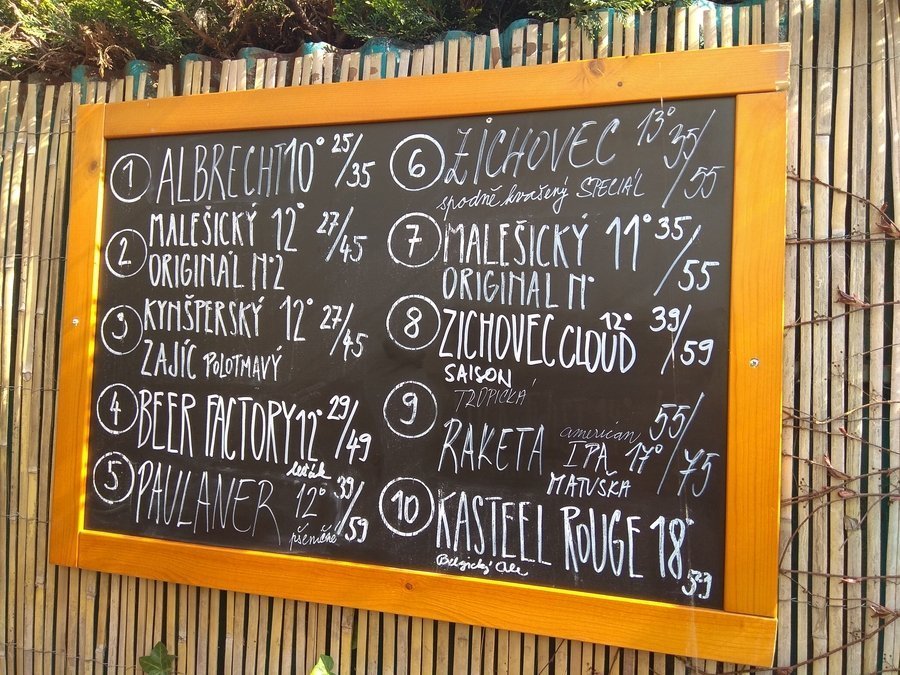 1 ALBRECHT 10° 25/35
2 MALEŠICKÝ 12° 27/45
ORIGINÁL N°2
3 KYNŠPERSKÝ 12° 27/45
ZAJÍC POLOTMAVÝ
4 BEER FACTORY 12° 29/49
ležák
5 PAULANER 12° 39/59
pšeničné
6 ZICHOVEC 13° 35/55
spodně kvašený SPECIÁL
7 MALEŠICKÝ 11° 35/55
ORIGINAL N°
8 ZICHOVEC CLOUD 12° 39/59
SAISON
9 TROPICKÁ
RAKETA american 55/75
IPA 17°
MATUŠKA
10 KASTEEL ROUGE 18° 59
Belgický Ale